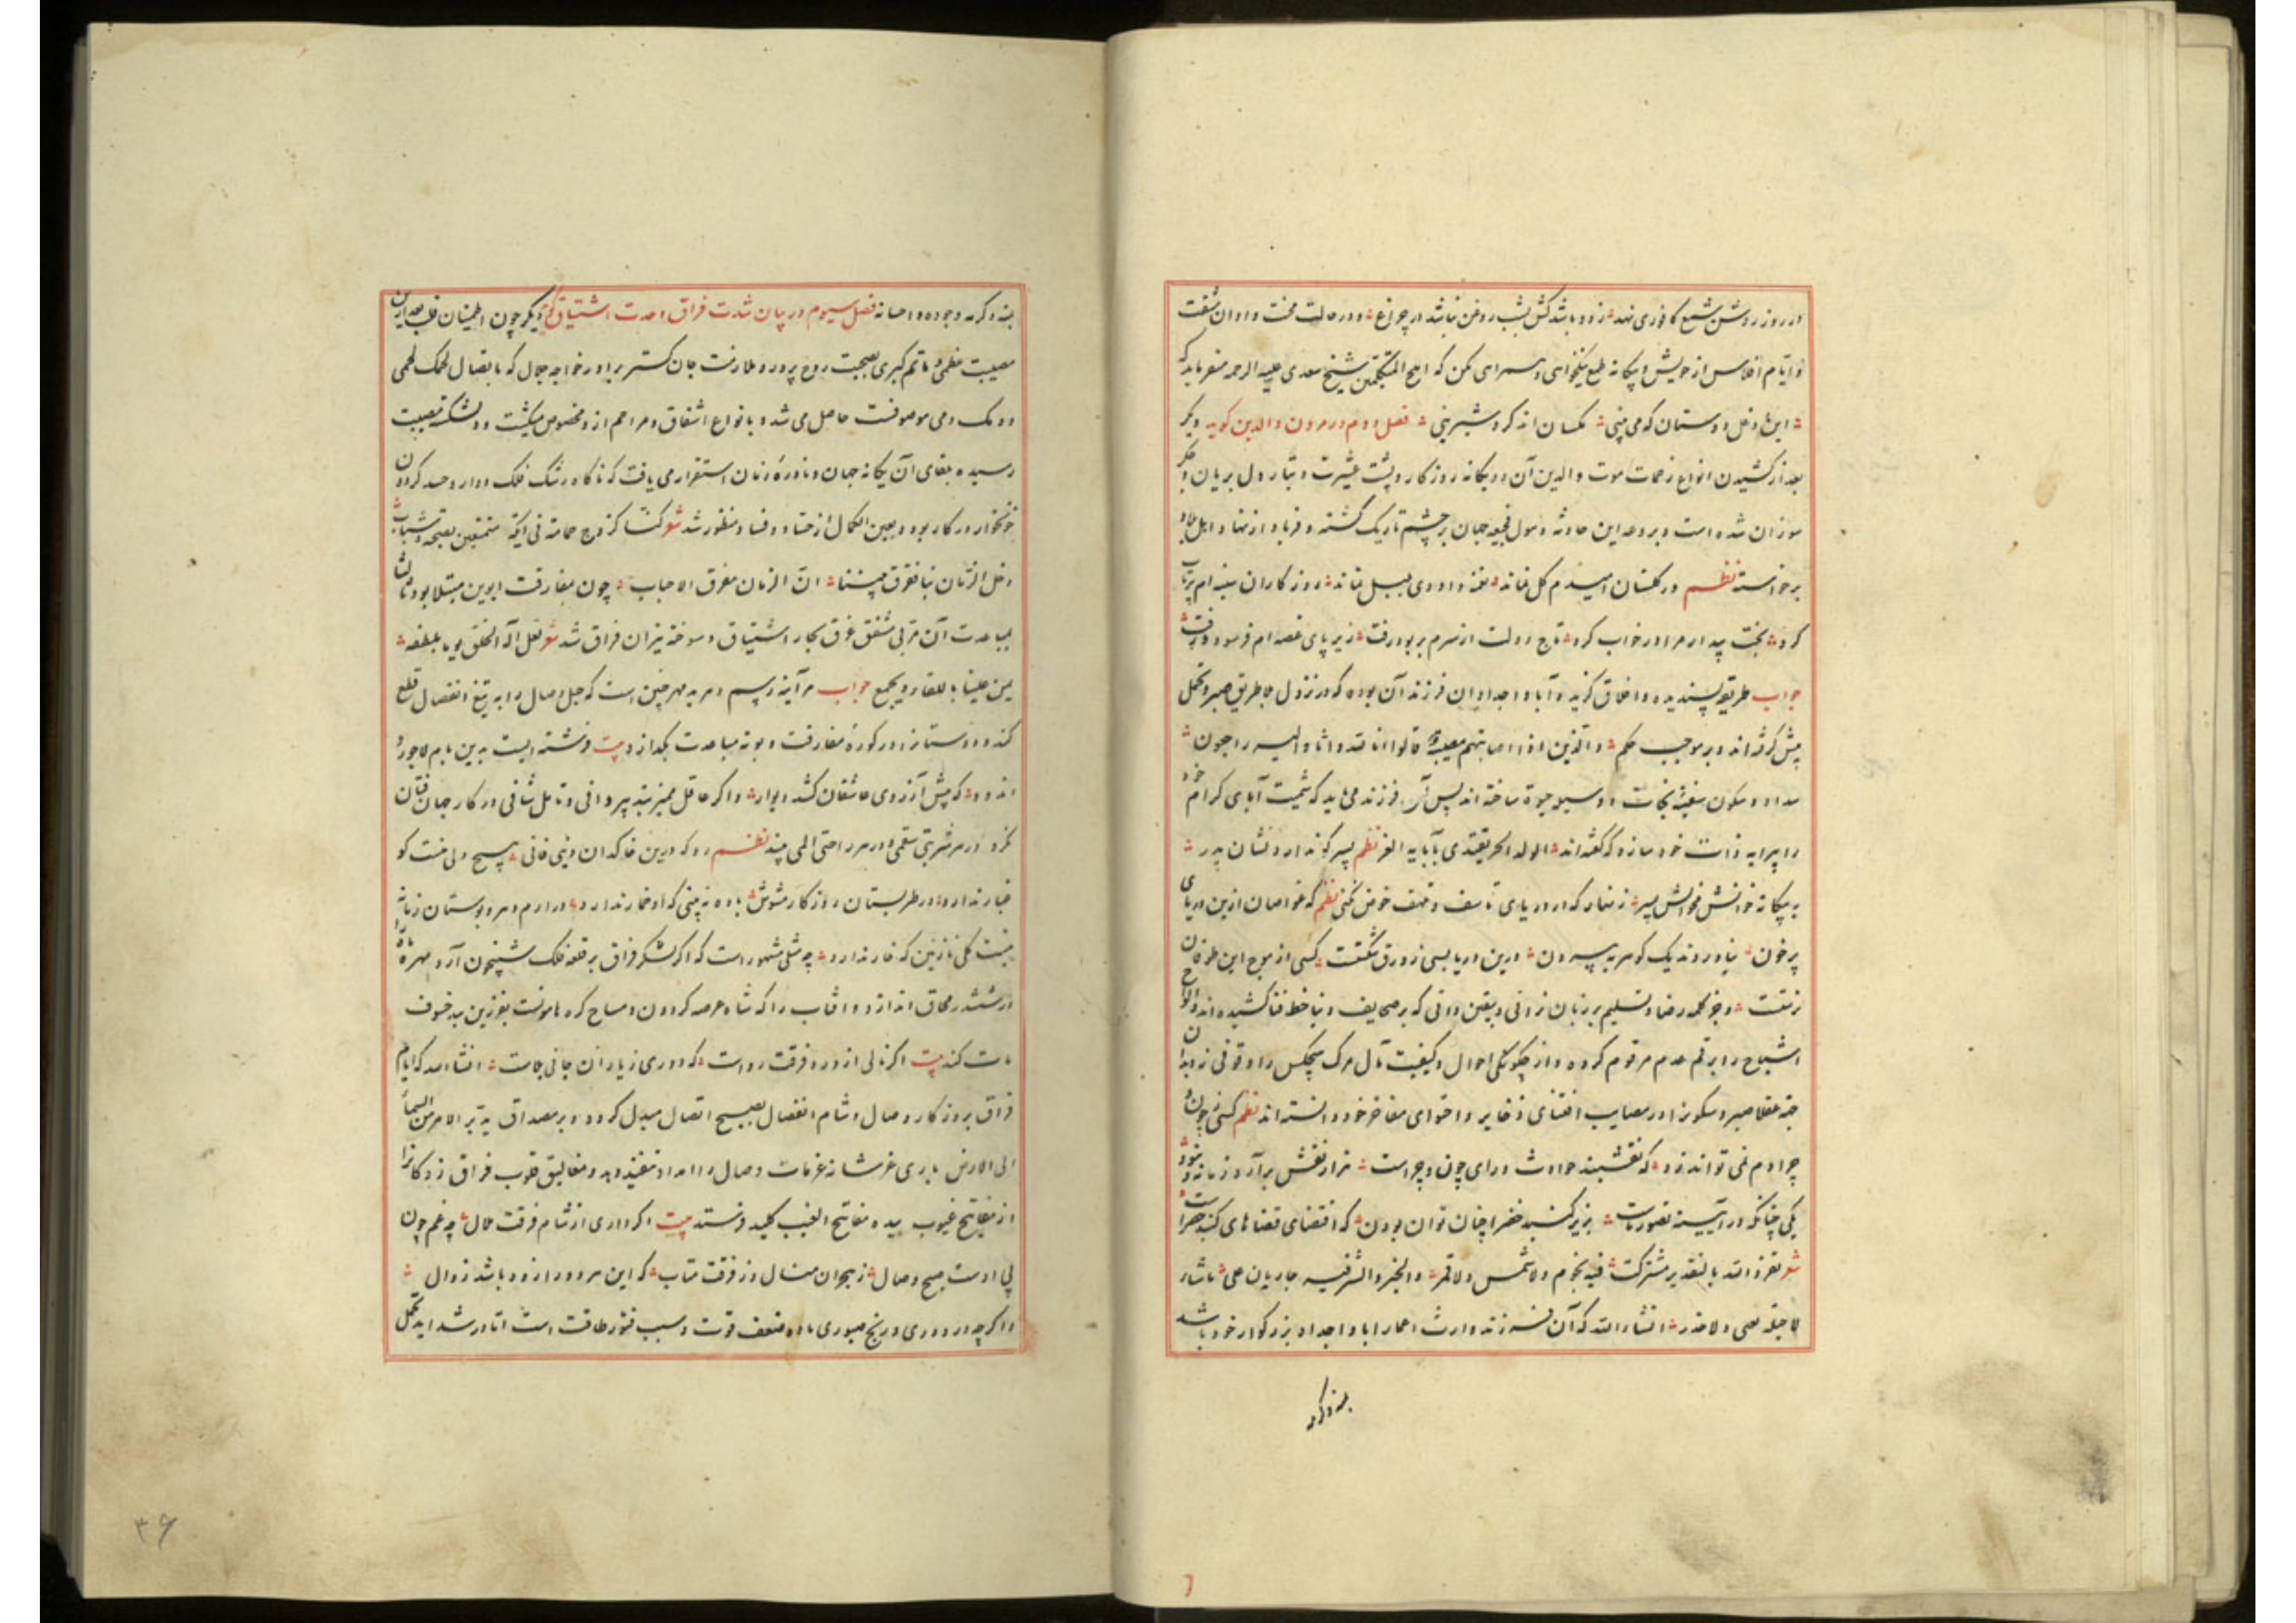 در روز روشن شمع کافوری نهد زود باشد کش بشب روغن نباشد در چراغ و در حالت محنت و اوان شقت
و ایام افلاس از خویش و بیگانه طمع نیکخواهی و همراهی مکن که املح المتکلمین شیخ سعدی علیه الرحمه میفرماید که
این دغل دوستان که می بینی مکسان اند کرد شیرینی فصل دوم در مردن والدین کوید دیکر
بعد از کشیدن انواع زحمات موت والدین آن دو یکانه روزکار و پشت عشیرت و تبار دل بریان و جکر
سوزان شده است و بر وعه این حادثه و هول فجیعه جهان بر چشم تاریک کشته و فریاد از نهاد اهل بلاد
برخواسته نظم در کلستان امیدم کل نماند نغمه داودی بلبل نماند روزکاران سینه ام پرتاب
کرد بخت بیدار مرا در خواب کرد تاج دولت از سرم بربود رفت زیر پای غصه ام فرسود و رفت
جواب طریقه پسندیده و اخلاق کزیده آبا و اجداد ان فرزند آن بوده که در نزول بلا طریق صبر و تحمل
پیش کرفته اند و بر موجب حکم و الذین اذا اصابتهم مصیبة قالوا انا لله و انا الیه راجعون
سداد و سکون سفینه نجات و وسیله حیوة ساخته اند پس آن فرزند می باید که شیمت آبای کرام خود
را پیرایه ذات خود سازد که کفته اند الولد الحر یقتدی بآبایه الغر نظم پسر کو ندارد نشان پدر
بیکانه خوانش مخوانش پسر زنهار که در دریای تاسف و تلهف خوض نکنی نظم که غواصان ازین دریای
پر خون نیاوردند یک کوهر به بیرون درین دریا بسی زورق شکست کسی از موج این طوفان
نرست و جز کلمه رضا و تسلیم بر زبان نرانی و بیقین دانی که بر صحایف دنیا خط فنا کشیده اند و الواح
اشباح را برقم عدم مرقوم کرده و از چکونکی احوال و کیفیت مآل مرک هیچکس را وقوفی نداده ان
عقلا صبر و سکون را در مصایب اقتنای ذخایر و احتوای مفاخر خود دانسته اند نظم کسی ز چون و
چرا دم نمی تواند زد که نقشبند حوادث ورای چون و چراست هزار نقش برآرد زمانه و نبود
یکی چنانکه در آیینه تصور ماست بزیر کنبد خضرا چنان توان بودن که اقتضای قضاهای کنبد خضراست
شعر تفرد الله بالتقدیر مشترکت فیه نجوم ولا شمس ولا قمر والخیر والشر فیه جاریان علی ماشاء
لا حیلة تغنی ولا حذر انشاء الله که آن فرزند وارث اعمار ابا و اجداد بزرکوار خود باشد
بمنه و کرمه
بمنه و کرمه وجوده و احسانه فصل سیوم در بیان شدت فراق و حدت اشتیاق کوید دیکر چون اطمینان قلب بعد از این
مصیبت عظمی و ماتم کبری بصحبت روح پرور و ملازمت جان کستر برادر خواجه جلال که باتصال لحمک لحمی
و دمک دمی موصوفست حاصل می شد و بانواع اشفاق و مراحم از و مخصوص میکشت و دلشکسته مصیبت
رسیده ببقای آن یکانه جهان و نادره زمان استقرار می یافت که ناکاه رشک فلک دوار و حسد کردون
خونخوار در کار بود و بعین الکمال از حساد و فساد منظور شد شعر کنا کزوج حمامة فی ایکة متمتعین بصحبة و شباب
دخل الزمان بنا ففرق بیننا ان الزمان مفرق الاحباب چون مفارقت ابوین مبتلا بود ثالثا
بمباعدت آن مربی مشفق غرق بحار اشتیاق و سوخته نیران فراق شد شعر لعل اله الخلق یوما بلطفه
یمن علینا باللقاء و یجمع جواب هر آینه رسم دهر بد مهر چنین است که حبل وصال را به تیغ انفصال قطع
کند و دوستان را در کوره مفارقت و بوته مباعدت بکدازد بیت فرشته ایست بدین بام لاجورد
اندود که پیش آرزوی عاشقان کشد دیوار و اکر عاقل ممیز بتدبیر وافی و تامل شافی در کار جهان فتان
نکرد در هر شربتی سقمی و در هر راحتی المی بیند نظم رو که درین خاکدان دنیی فانی هیچ دلی نیست کو
غبار ندارد در طربستان روزکار مشوش باده نه بینی که او خمار ندارد در ارم دهر و بوستان زمانه
نیست کلی نازنین که خار ندارد چه مثلی مشهور است که اکر لشکر فراق بر قلعه فلک شبیخون آرد مهره ماه را
در ششدر محاق اندازد و افتاب را که شاه عرصه کردون و مساح کره هامونست بفرزین بند خسوف
مات کند بیت اکر نالی از درد فرقت رواست که دوری ز یاران جانی بلاست انشاءالله که ایام
فراق بروزکار وصال و شام انفصال بصبح اتصال مبدل کردد و بر مصداق یدبر الامر من السماء
الی الارض باری عز شانه عزمات وصال را امداد تنفیذ دهد و مغالیق قلوب فراق زدکان را
از مفاتیح غیوب بیده مفاتیح الغیب کلید فرستد بیت اکر داری از شام فرقت ملال چه غم چون
پی اوست صبح وصال ز هجران منال وز فرقت متاب که این هر دو را زود باشد زوال
و اکر چه درد دوری و رنج صبوری ماده ضعف قوت و سبب فتور طاقت است اما در شداید تحمل
۳۶